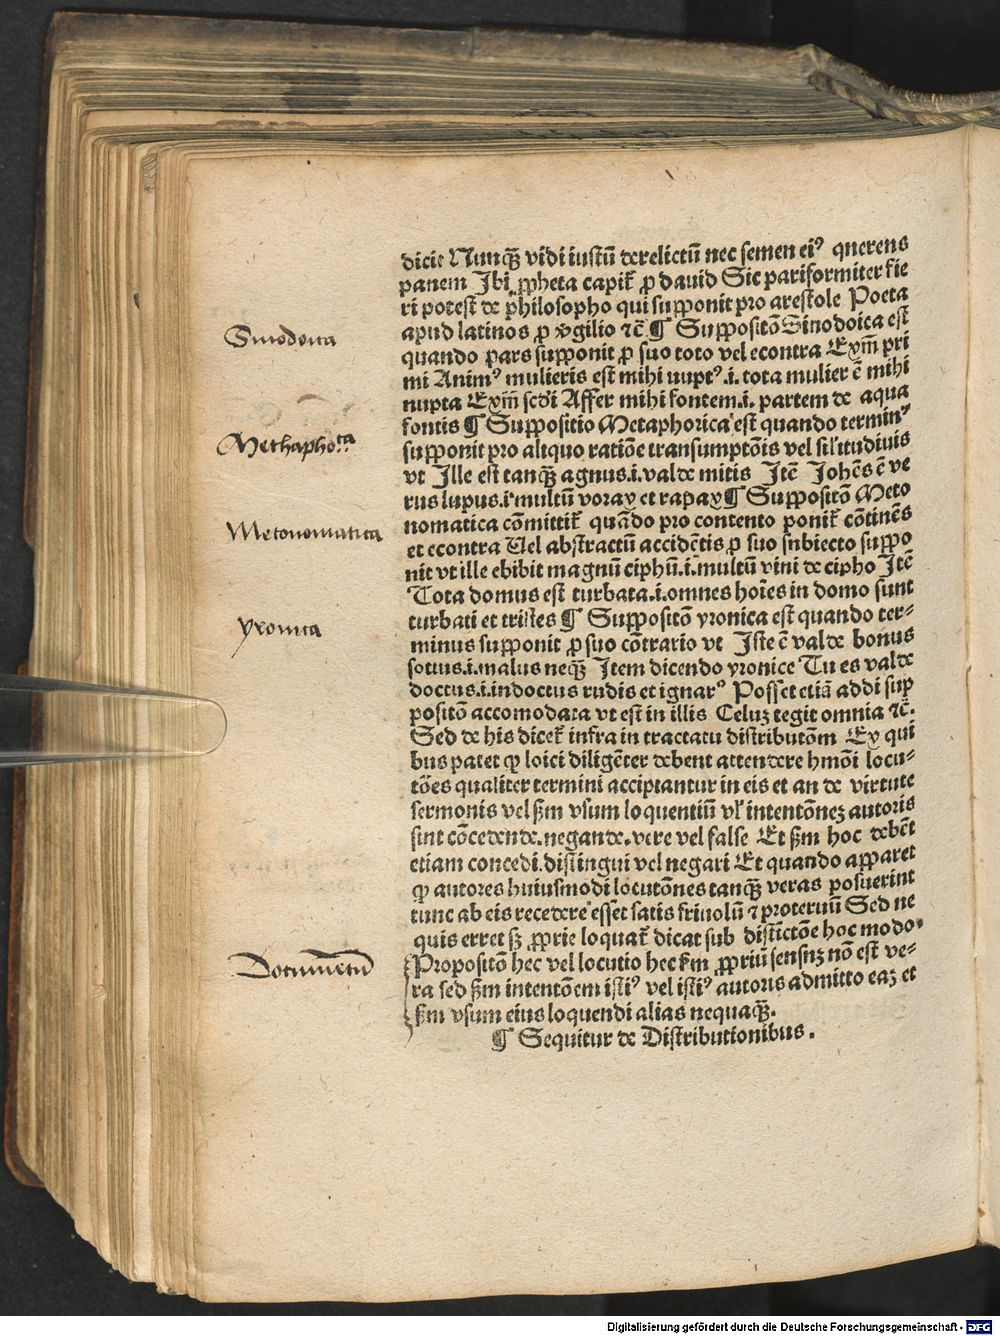 dicit Nunq̃ vidi iustū derelictū nec semen eiꝰ querens
panem Ibi ꝓpheta capit̉ ꝓ dauid Sic pariformiter fie
ri potest de philosopho qui supponit pro arestole Poeta
apud latinos ꝓ v̉gilio ⁊c̄ ¶ Suppositõ Sinodoica est
quando pars supponit ꝓ suo toto vel econtra Exm̄ pri
mi Animꝰ mulieris est mihi nuptꝰ .i. tota mulier ē mihi
nupta Exm̄ scd̓i Affer mihi fontem .i. partem de aqua
fontis ¶ Suppositio Metaphorica est quando terminꝰ
supponit pro aliquo ratiõe transumptõis vel sil'itudinis
vt Ille est tanq̃ agnus .i. valde mitis Itē Johēs ē ve
rus lupus .i. multū vorax et rapax ¶ Suppositõ Meto
nomatica cõmittit̉ quãdo pro contento ponit̉ cõtinēs
et econtra Uel abstractū accidētis ꝓ suo subiecto suppo
nit vt ille ebibit magnū ciphū .i. multū vini de cipho Itē
Tota domus est turbata .i. omnes hoīes in domo sunt
turbati et tristes ¶ Suppositõ yronica est quando ter-
minus supponit ꝓ suo cõtrario vt Iste ē valde bonus
sottus .i. malus neq̃ Item dicendo yronice Tu es valde
doctus .i. indoctus rudis et ignarꝰ Posset etiã addi sup
positõ accomodata vt est in illis Celuꝫ tegit omnia ⁊c̄.
Sed de his dicet̉ infra in tractatu distributõm Ex qui
bus patet ꝙ loici diligēter debent attendere hmõi locu-
tões qualiter termini accipiantur in eis et an de virtute
sermonis vel ẜm vsum loquentiū vl' intentõneꝫ autoris
sint cõcedende. negande. vere vel false Et ẜm hoc debēt
etiam concedi. distingui vel negari Et quando apparet
ꝙ autores huiusmodi locutõnes tanq̃ veras posuerint
tunc ab eis recedere esset satis friuolū ⁊ proteruū Sed ne
quis erret sꝫ ꝓprie loquat̉ dicat sub distictõe hoc modo.
Propositõ hec vel locutio hec ẜm ꝓpriū sensuꝫ nõ est ve-
ra sed ẜm intentõem istiꝰ vel istiꝰ autoris admitto eaꝫ et
ẜm vsum eius loquendi alias nequaq̃.
¶ Sequitur de Distributionibus.
Sinodoica
Methaphoᵗᵃ
Metonomatica
yronica
Documētū
Digitalisierung gefördert durch die Deutsche Forschungsgemeinschaft - DFG